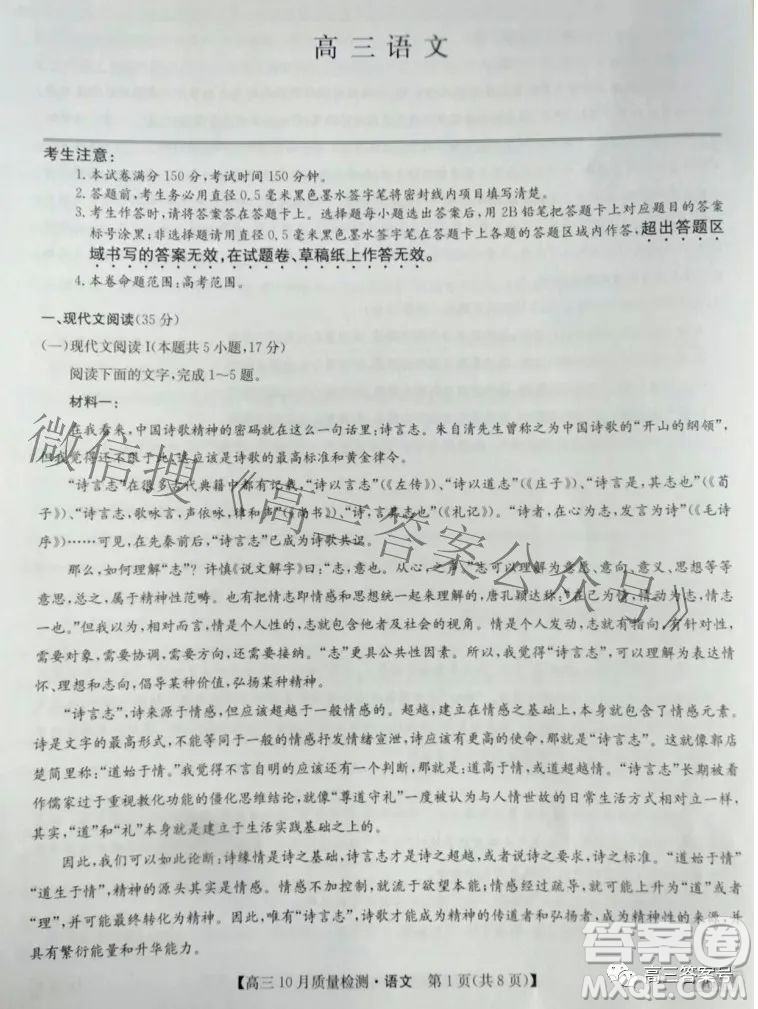 高三语文
考生注意:
1.本试卷满分150分,考试时间150分钟。
2.答题前,考生务必用直径0.5毫米黑色墨水签字笔将密封线内项目填写清楚。
3.考生作答时,请将答案答在答题卡上。选择题每小题选出答案后,用2B铅笔把答题卡上对应题目的答案
标号涂黑;非选择题请用直径0.5毫米黑色墨水签字笔在答题卡上各题的答题区域内作答,超出答题区
域书写的答案无效,在试题卷、草稿纸上作答无效。
4.本卷命题范围:高考范围。
一、现代文阅读(35分)
(一)现代文阅读I(本题共5小题,17分)
阅读下面的文字,完成1~5题。
材料一:
在我看来,中国诗歌精神的密码就在这么一句话里:诗言志。朱自清先生曾称之为中国诗歌的“开山的纲领”,
但我觉得还不限于此,这应该是诗歌的最高标准和黄金律令。
“诗言志”在很多古代典籍中都有记载,“诗以言志”(《左传》)、“诗以道志”(《庄子》)、“诗言是,其志也”(《荀
子》)、“诗言志,歌咏言,声依咏,律和声”(《尚书》)、“诗,言其志也”(《礼记》)。“诗者,在心为志,发言为诗”(《毛诗
序》)……可见,在先秦前后,“诗言志”已成为诗歌共识。
那么,如何理解“志”?许慎《说文解字》曰:“志,意也。从心,之声”志可以理解为意愿、意向、意义、思想等等
意思,总之,属于精神性范畴。也有把情感和思想统一起来理解的,唐孔颖达称:“在己为情,情动为志,情志
一也。”但我以为这两者是有所相对而言,情是个人性的,志就包含着他者及社会的视角。情是个人发动,志就有指向,有针对性,
需要对象,需要协调,需要方向,还需要接纳。“志”更具公共性因素。所以,我觉得“诗言志”,可以理解为表达情
怀、理想和志向,倡导某种价值,弘扬某种精神。
“诗言志”,诗来源于情感,但应该超越于一般情感。超越,建立在情感之基础上,本身就包含了情感元素。
诗是文字的最高形式,不能等同于一般的情感抒发情绪宣泄,诗应该有更高的使命,那就是“诗言志”,就像郭店
楚简里称:“道始于情。”我觉得不言自明的应该还有一个判断,那就是:道高于情,或大于情。“诗言志”长期被看
作儒家过于重视教化功能的僵化思维结论,就像“尊道守礼”一度被认为与人情世故的日常生活方式相对立一样,
其实,“道”和“礼”本身就是在生活实践基础之上的。
因此,我们可以如此论断:诗缘情是诗之基础,诗言志才是诗之超越,或者说诗之要求,诗之标准。“道始于情”
“道生于情”,精神的源头其实是情感。情感不加控制,就流于欲望本能;情感经过疏导,就可能上升为“道”或者
“理”,并可能最终转化为精神。因此,唯有“诗言志”,诗歌才能成为精神的传道者和弘扬者,成为精神性的来源,并
具有繁衍能量和升华能力。
【高三10月质量检测·语文 第1页(共8页)】
微信搜《高三答案公众号》
答案圈
MXQE.COM
高三答案号